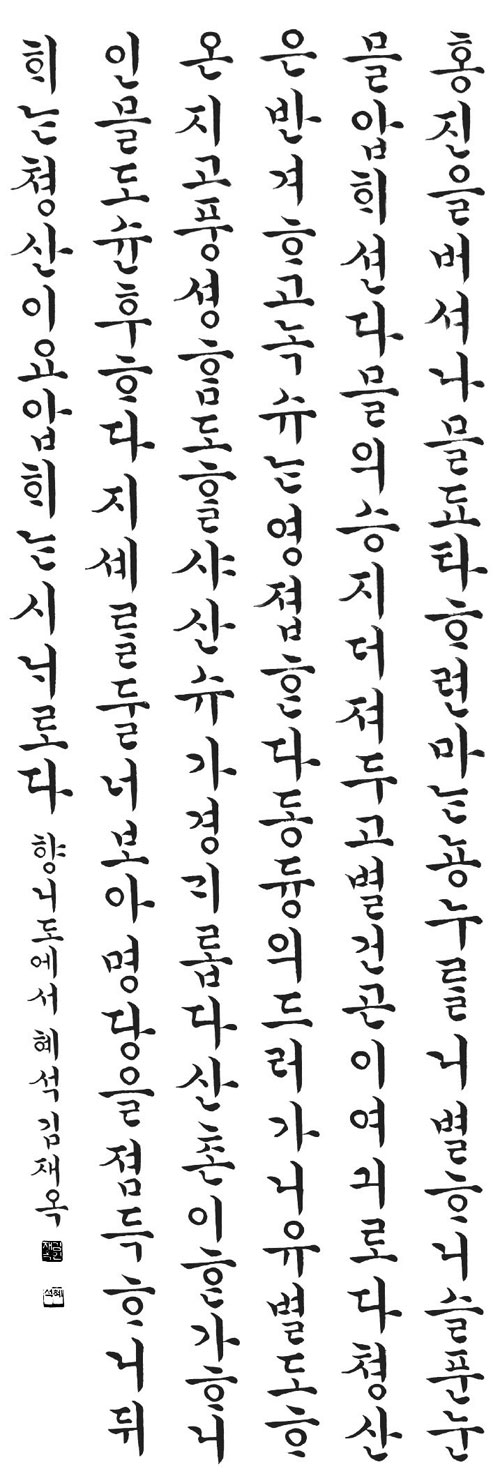 홍진을버셔나믈됴타ᄒᆞ련마ᄂᆞᆫ뇽누를니별ᄒᆞ니슬푼눈
믈압희션다믈의승지더져두고별건곤이여긔로다쳥산
은반겨ᄒᆞ고녹슈ᄂᆞᆫ영졉ᄒᆞᆫ다동듕의드러가니유별도ᄒᆞ
온지고풍셩ᄒᆞᆷ도ᄒᆞᆯ샤산슈가경긔롭다산촌이ᄒᆞᆫ가ᄒᆞ니
인믈도슌후ᄒᆞ다지셰를둘너보아명당을졈득ᄒᆞ니뒤
희ᄂᆞᆫ쳥산이요압희ᄂᆞᆫ시ᄂᆡ로다 향니도에서 혜석 김재옥
혜석